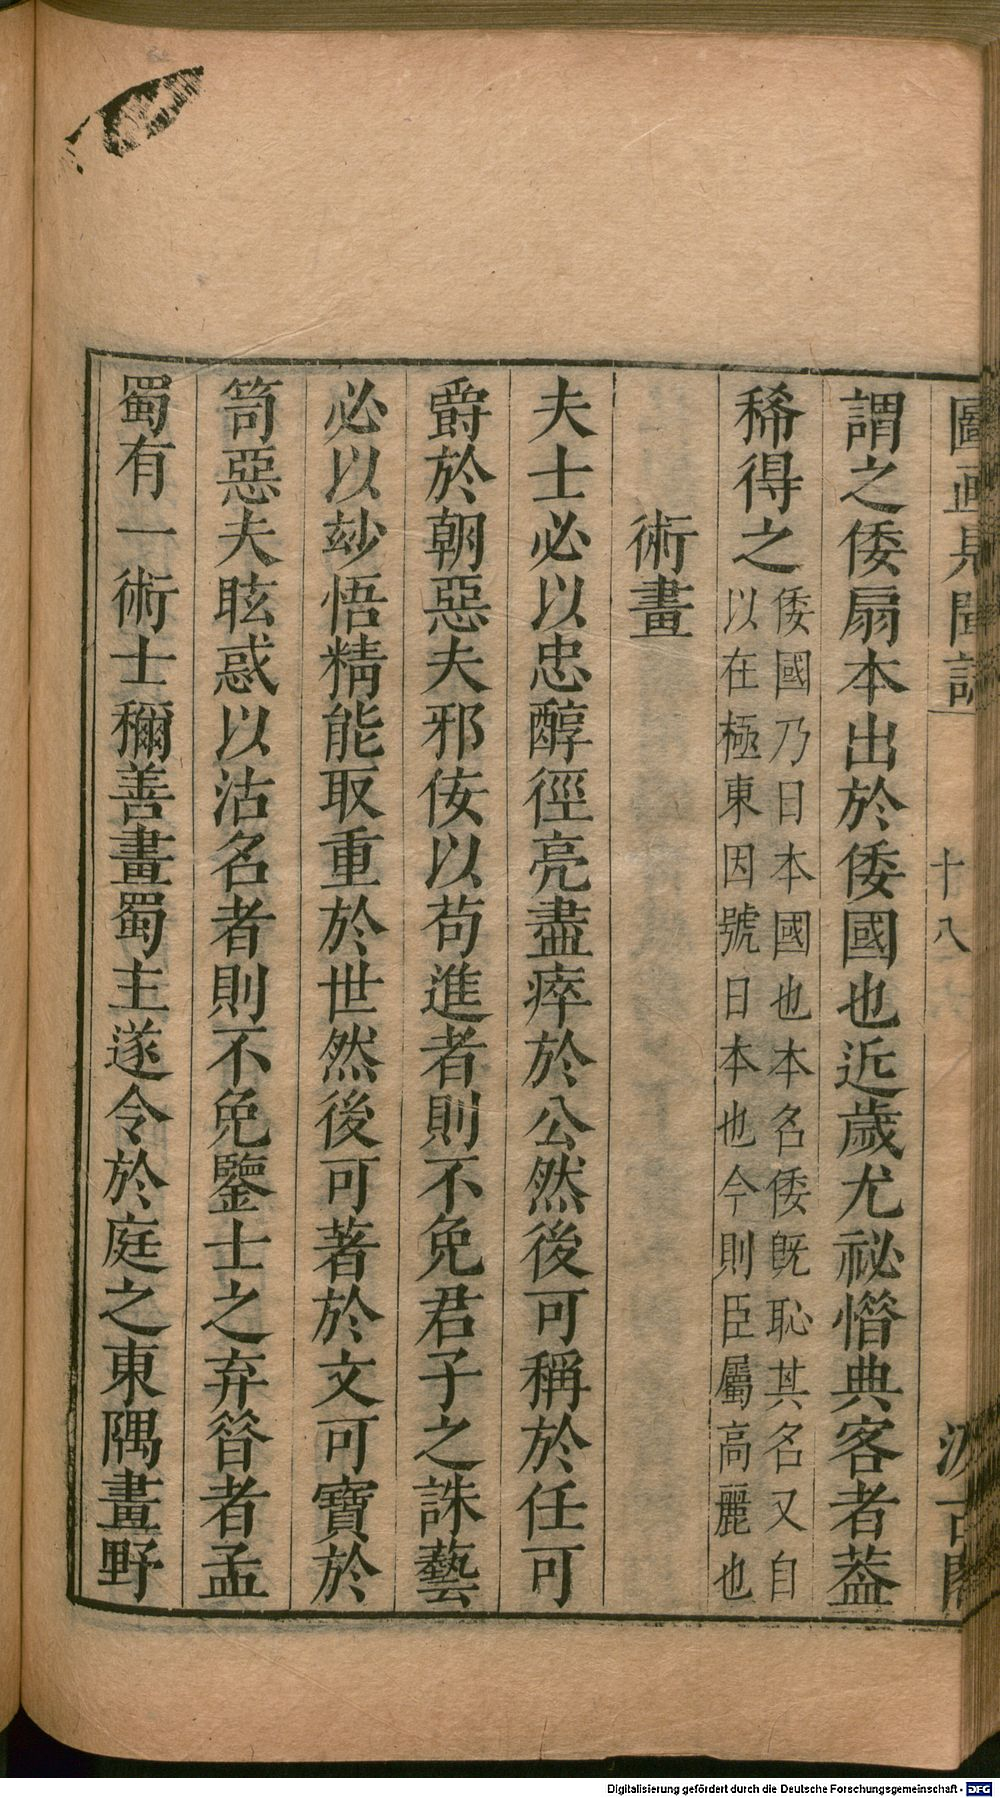 圖画見聞誌
十八
汲古閣
謂之倭扇本出於倭國也近歲尤祕惜典客者葢
稀得之
倭國乃日本國也本名倭旣恥其名又自
以在極東因號日本也今則臣屬高麗也
術畫
夫士必以忠醇徑亮盡瘁於公然後可稱於任可
爵於朝惡夫邪佞以苟進者則不免君子之誅藝
必以玅悟精能取重於世然後可著於文可寶於
笥惡夫眩惑以沽名者則不免鑒士之弃昝者孟
蜀有一術士穪善畫蜀主遂令於庭之東隅畫野
Digitalisierung gefördert durch die Deutsche Forschungsgemeinschaft - DFG